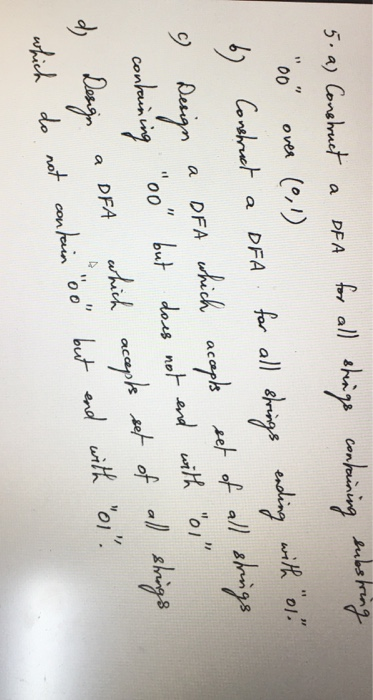 5. a) Construct a DFA for all strings containing substring
"00" over (0,1)
b) Construct a DFA for all strings ending with "01."
c) Design a DFA which accepts set of all strings
containing "00" but does not end with "01"
d) Design a DFA which accepts set of all strings
which do not contain "00" but end with "01".